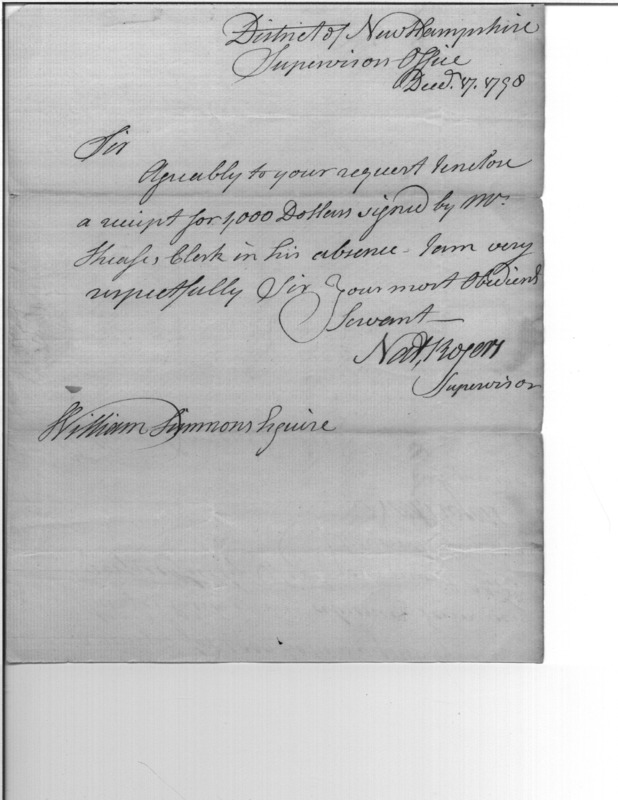 District of New Hampshire
Supervisors Office
Decd. 17. 1798
Sir
Agreably to your request I enclose
a receipt for 1,000 Dollars signed by Mr.
Sheafes Clerk in his absence - I am very
respectfully Sir Your most Obedient
Servant
Natl, Rogers
Supervisor
William Simmons Esquire